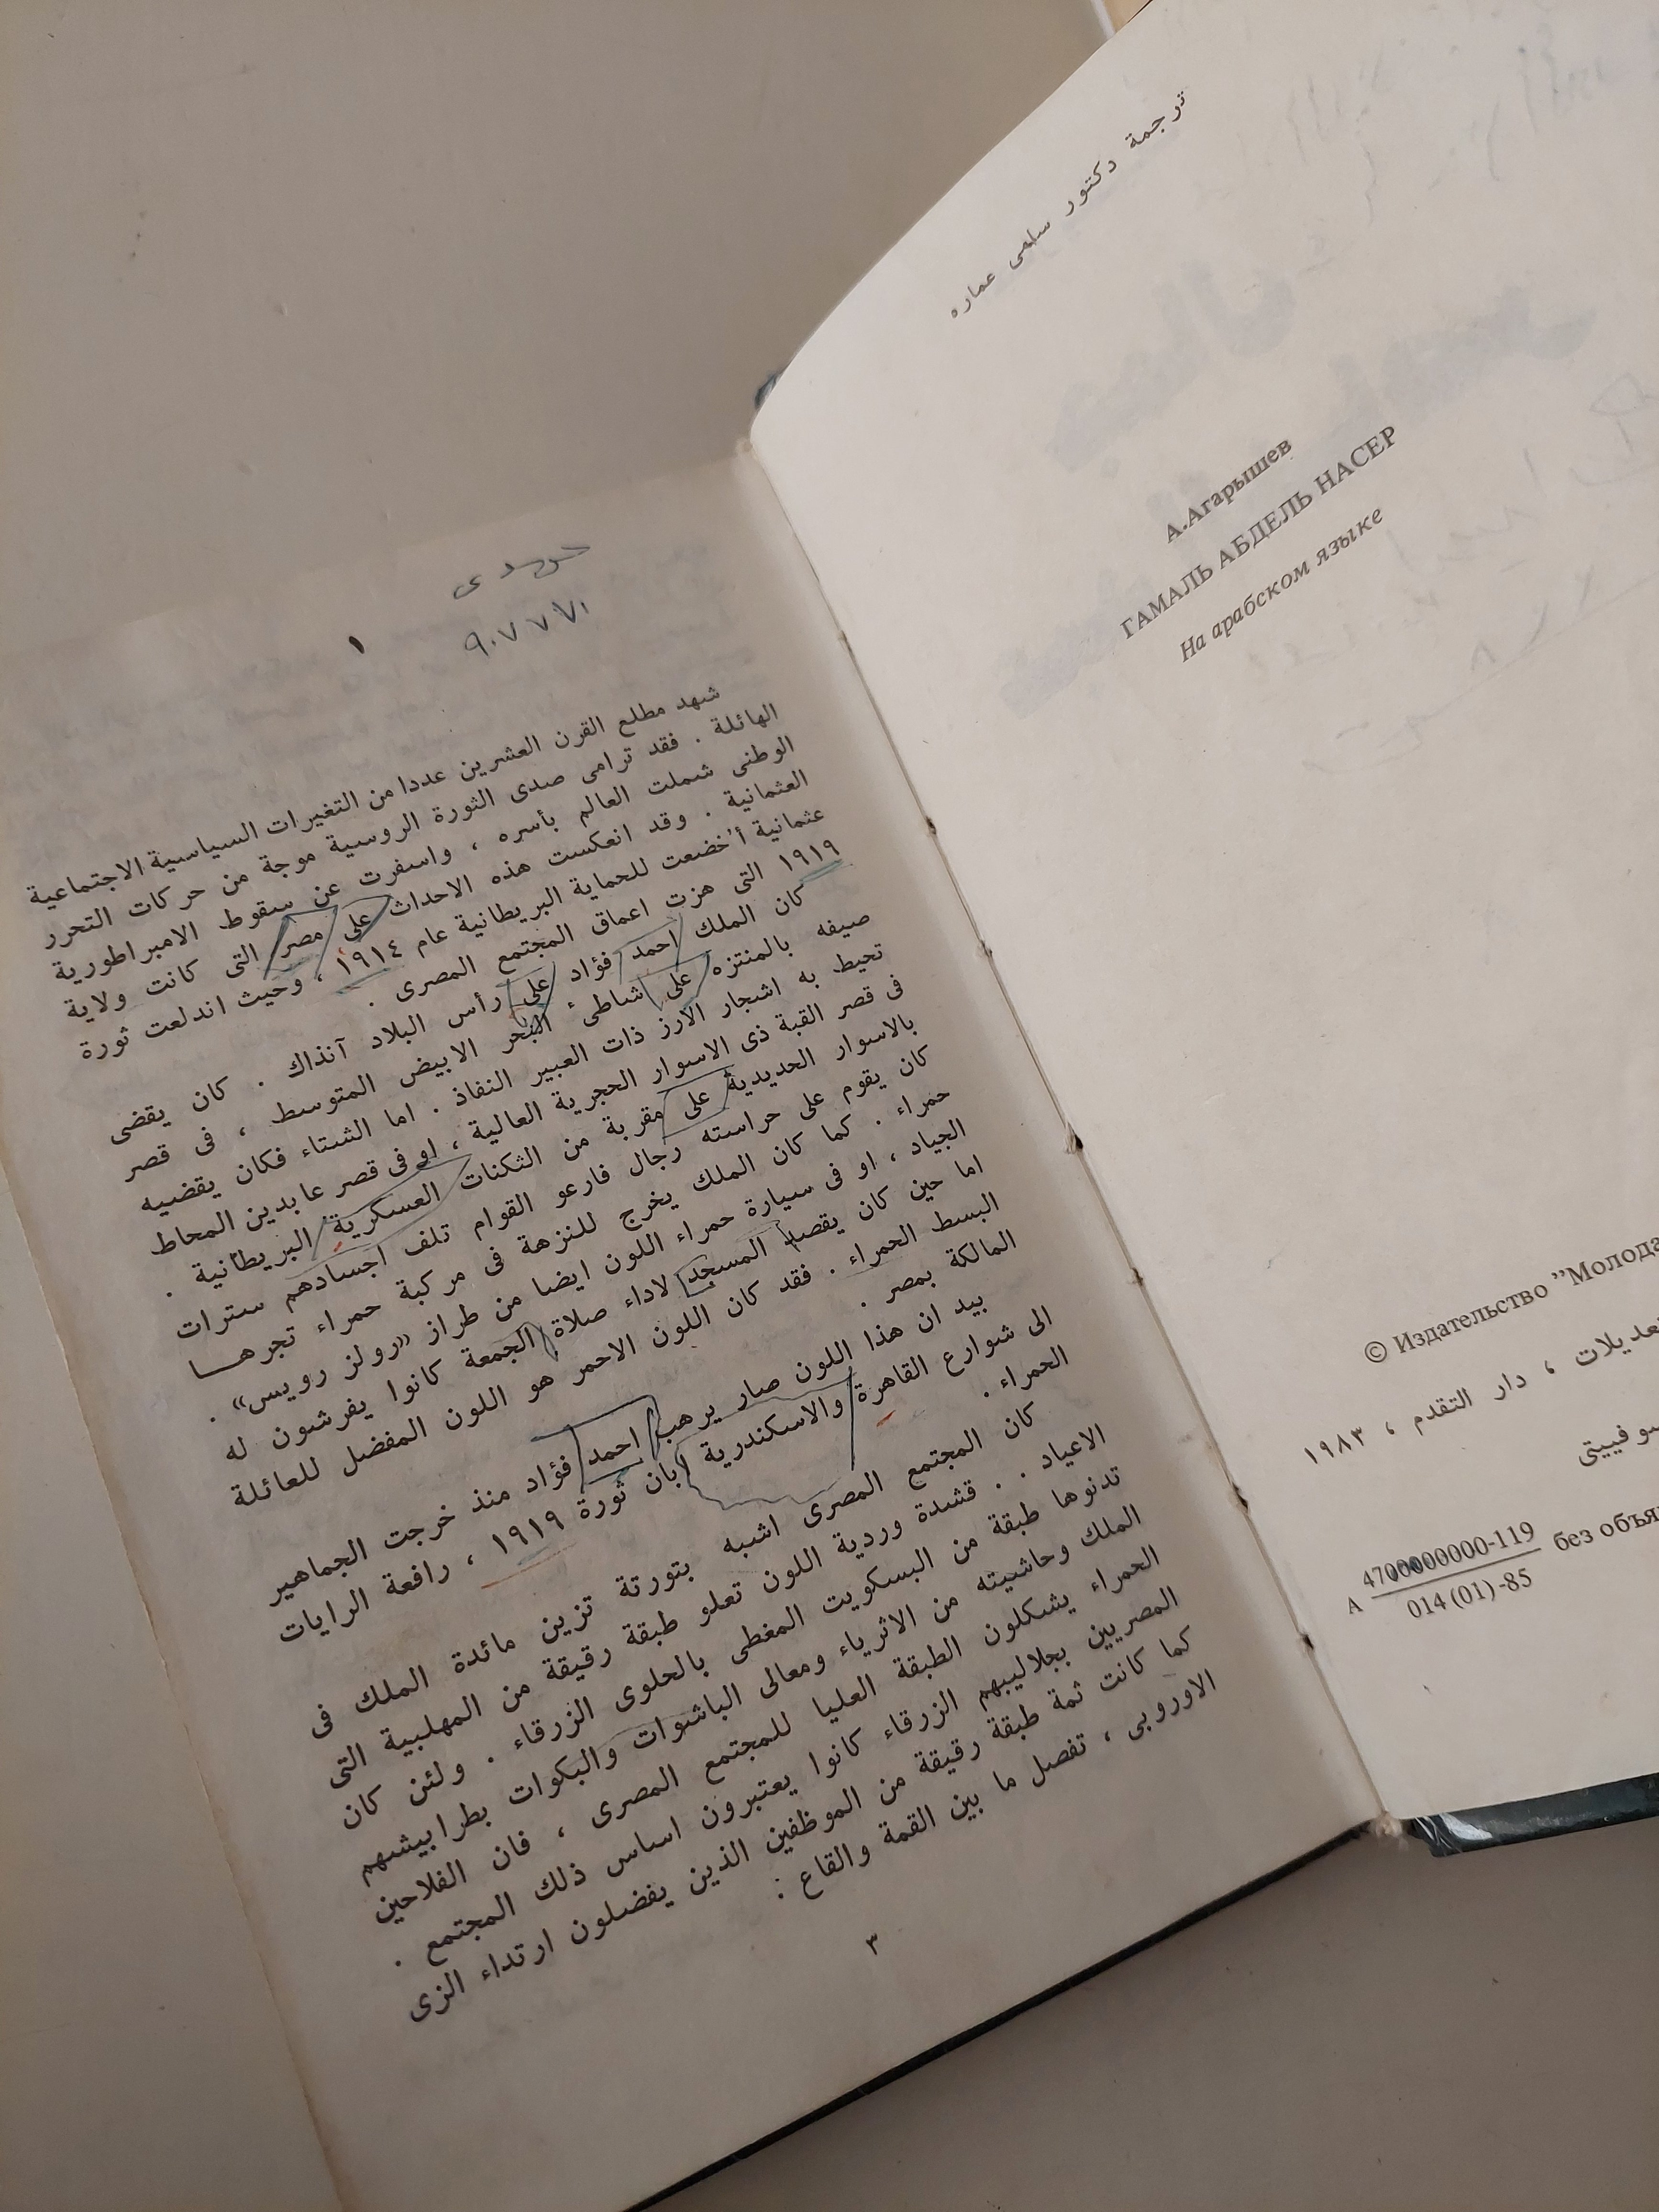 ترجمة دكتور سلمى عماره
А.Агарышев
ГАМАЛЬ АБДЕЛЬ НАСЕР
На арабском языке
© Издательство "Молода
تعديلات ، دار التقدم ، ١٩٨٣
سوفييتى
А 4700000000-119 без объя
014 (01) -85
١
شهد مطلع القرن العشرين عددا من التغيرات السياسية الاجتماعية
الهائلة . فقد ترامى صدى الثورة الروسية موجة من حركات التحرر
الوطنى شملت العالم بأسره ، واسفرت عن سقوط الامبراطورية
العثمانية . وقد انعكست هذه الاحداث على مصر التى كانت ولاية
عثمانية أُخضعت للحماية البريطانية عام ١٩١٤ ، وحيث اندلعت ثورة
١٩١٩ التى هزت اعماق المجتمع المصرى .
كان الملك احمد فؤاد على رأس البلاد آنذاك . كان يقضى
صيفه بالمنتزه على شاطىء البحر الابيض المتوسط ، فى قصر
تحيط به اشجار الارز ذات العبير النفاذ . اما الشتاء فكان يقضيه
فى قصر القبة ذى الاسوار الحجرية العالية ، او فى قصر عابدين المحاط
بالاسوار الحديدية على مقربة من الثكنات العسكرية البريطانية .
كان يقوم على حراسته رجال فارعو القوام تلف اجسادهم سترات
حمراء . كما كان الملك يخرج للنزهة فى مركبة حمراء تجرها
الجياد ، او فى سيارة حمراء اللون ايضا من طراز «رولز رويس» .
اما حين كان يقصد المسجد لاداء صلاة الجمعة كانوا يفرشون له
البسط الحمراء . فقد كان اللون الاحمر هو اللون المفضل للعائلة
المالكة بمصر .
بيد ان هذا اللون صار يرهب احمد فؤاد منذ خرجت الجماهير
الى شوارع القاهرة والاسكندرية ابان ثورة ١٩١٩ ، رافعة الرايات
الحمراء .
كان المجتمع المصرى اشبه بتورتة تزين مائدة الملك فى
الاعياد . . قشدة وردية اللون تعلو طبقة رقيقة من المهلبية التى
تدنوها طبقة من البسكويت المغطى بالحلوى الزرقاء . ولئن كان
الملك وحاشيته من الاثرياء ومعالى الباشوات والبكوات بطرابيشهم
الحمراء يشكلون الطبقة العليا للمجتمع المصرى ، فان الفلاحين
المصريين بجلاليبهم الزرقاء كانوا يعتبرون اساس ذلك المجتمع .
كما كانت ثمة طبقة رقيقة من الموظفين الذين يفضلون ارتداء الزى
الاوروبى ، تفصل ما بين القمة والقاع :
٣